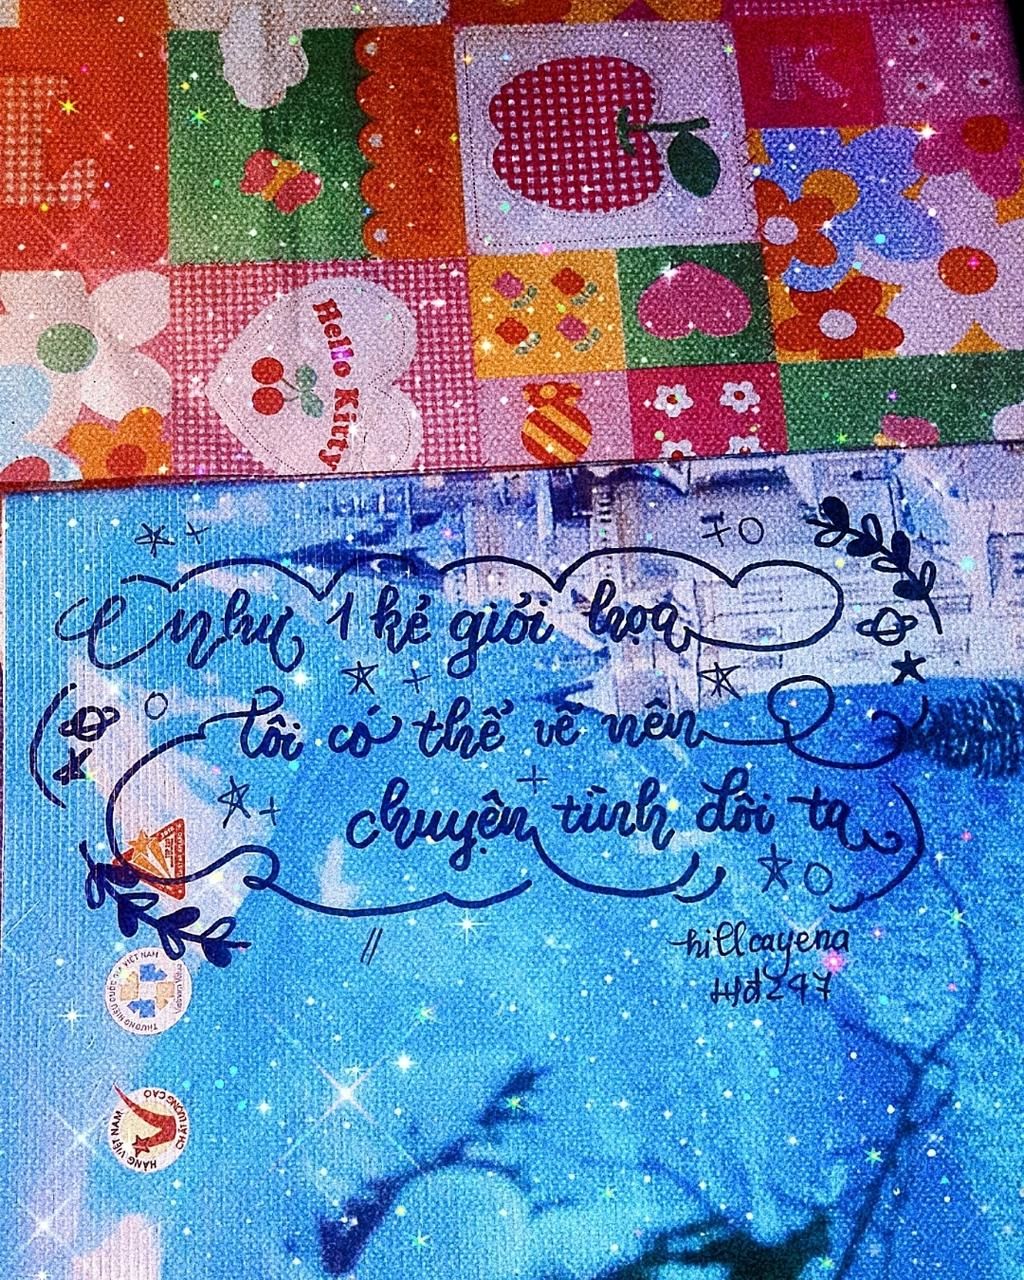 L
K
Hello Kitty
như 1 kẻ giỏi họa
tôi có thể vẽ nên
chuyện tình đôi ta
hillcayena
Hđ247
THƯƠNG HIỆU QUỐC GIA VIỆT NAM
HÀNG VIỆT NAM
CHẤT LƯỢNG CAO